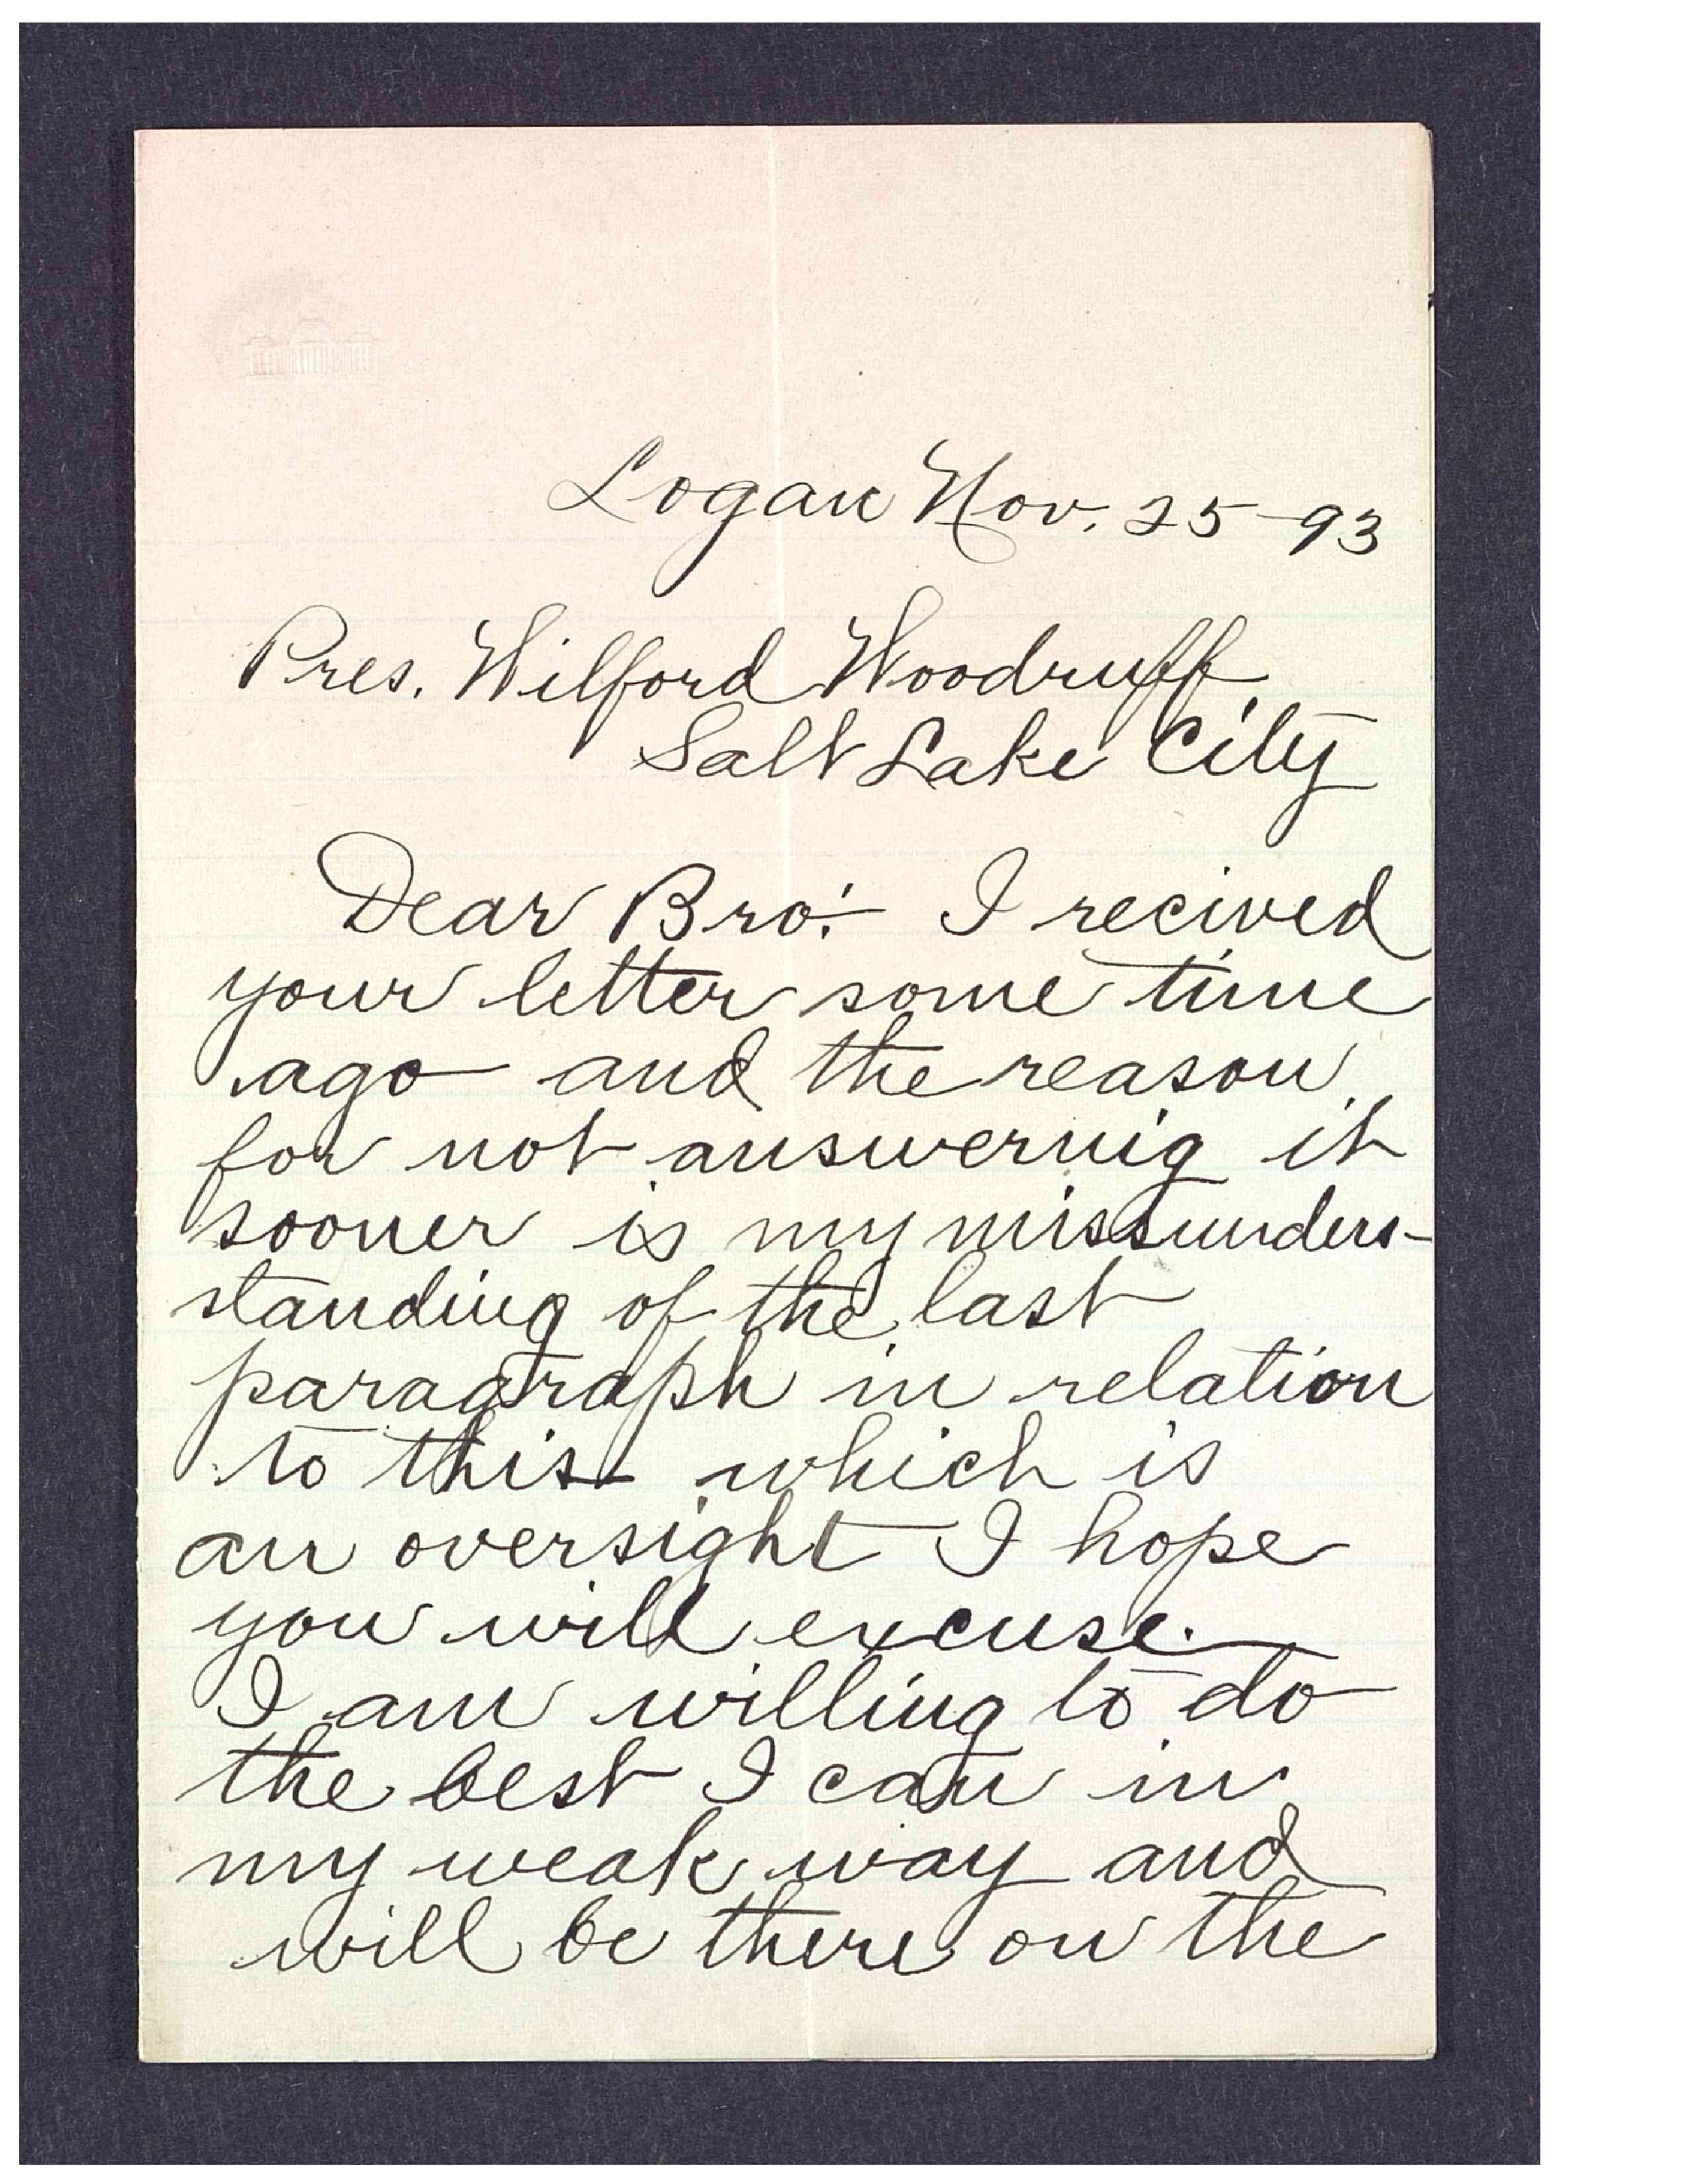 Logan Nov. 25-93
Pres. Wilford Woodruff
Salt Lake City
Dear Bro:- I recived
your letter some time
ago and the reason
for not answernig it
sooner is my missunders-
standing of the last
paragraph in relation
to this which is
an oversight I hope
you will excuse.
I am willing to do
the best I can in
my weak way and
will be there on the